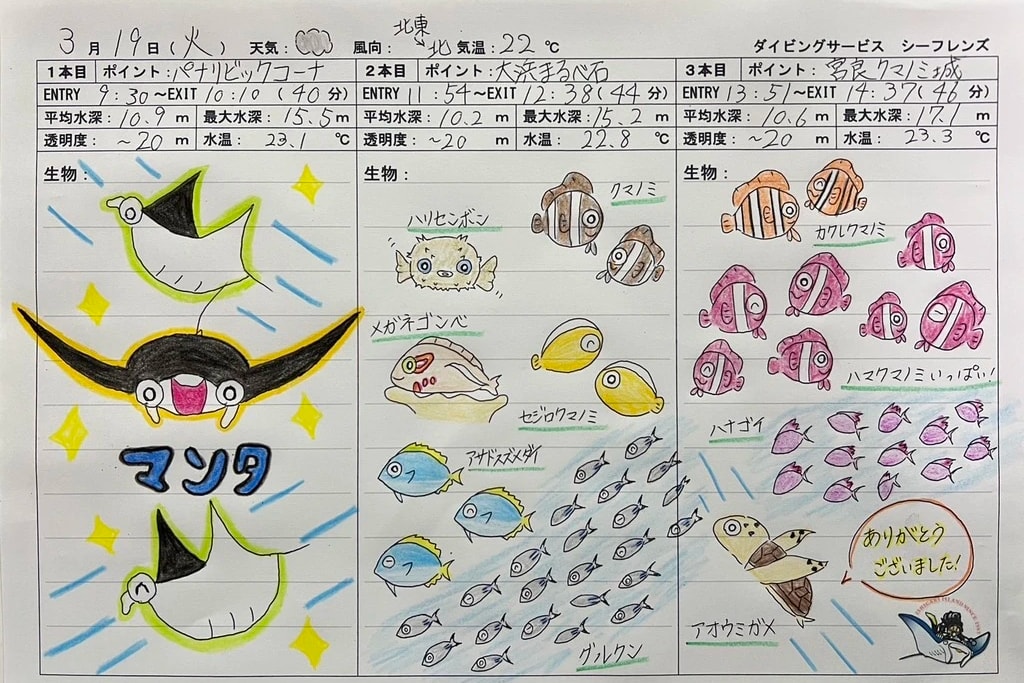 3月19日(火) 天気: 風向: 北東→北 気温:22℃ ダイビングサービス シーフレンズ
1本目 ポイント:パナリビッグコーナ
ENTRY 9:30~EXIT 10:10 (40分)
平均水深:10.9m 最大水深:15.5m
透明度:~20m 水温:23.1℃
生物:
マンタ
2本目 ポイント:大浜まるべ石
ENTRY 11:54~EXIT 12:38(44分)
平均水深:10.2m 最大水深:15.2m
透明度:~20m 水温:22.8℃
生物:
クマノミ
ハリセンボン
メガネゴンベ
セジロクマノミ
アサドスズメダイ
グルクン
3本目 ポイント:宮良クマノミ城
ENTRY 13:51~EXIT 14:37(46分)
平均水深:10.6m 最大水深:17.1m
透明度:~20m 水温:23.3℃
生物:
カクレクマノミ
ハマクマノミいっぱい!
ハナゴイ
ありがとう
ございました!
アオウミガメ